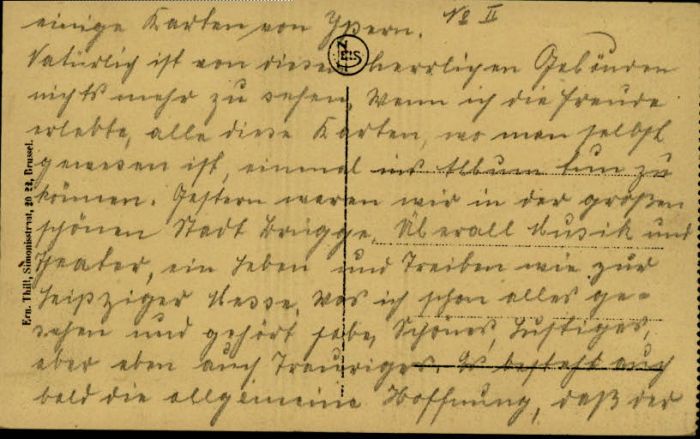 No II
einige Karten von Ypern.
Natürlich ist von diesen herrlichen Gebäuden
nichts mehr zu sehen, Wenn ich die Freude
erlebte, alle diese Karten, wo man selbst
gewesen ist, einmal ins Album tun zu
können. Gestern waren wir in der großen
schönen Stadt Brügge, Überall Musik und
Theater, ein Leben und Treiben wie zur
Leipziger Messe, Was ich schon alles ge-
sehen und gehört habe, Schönes, Lustiges,
aber eben auch Trauriges. Es besteht auch
bald die allgemeine Hoffnung, daß der
Ern. Thill, Simonisstraat, 20 22, Brussel.